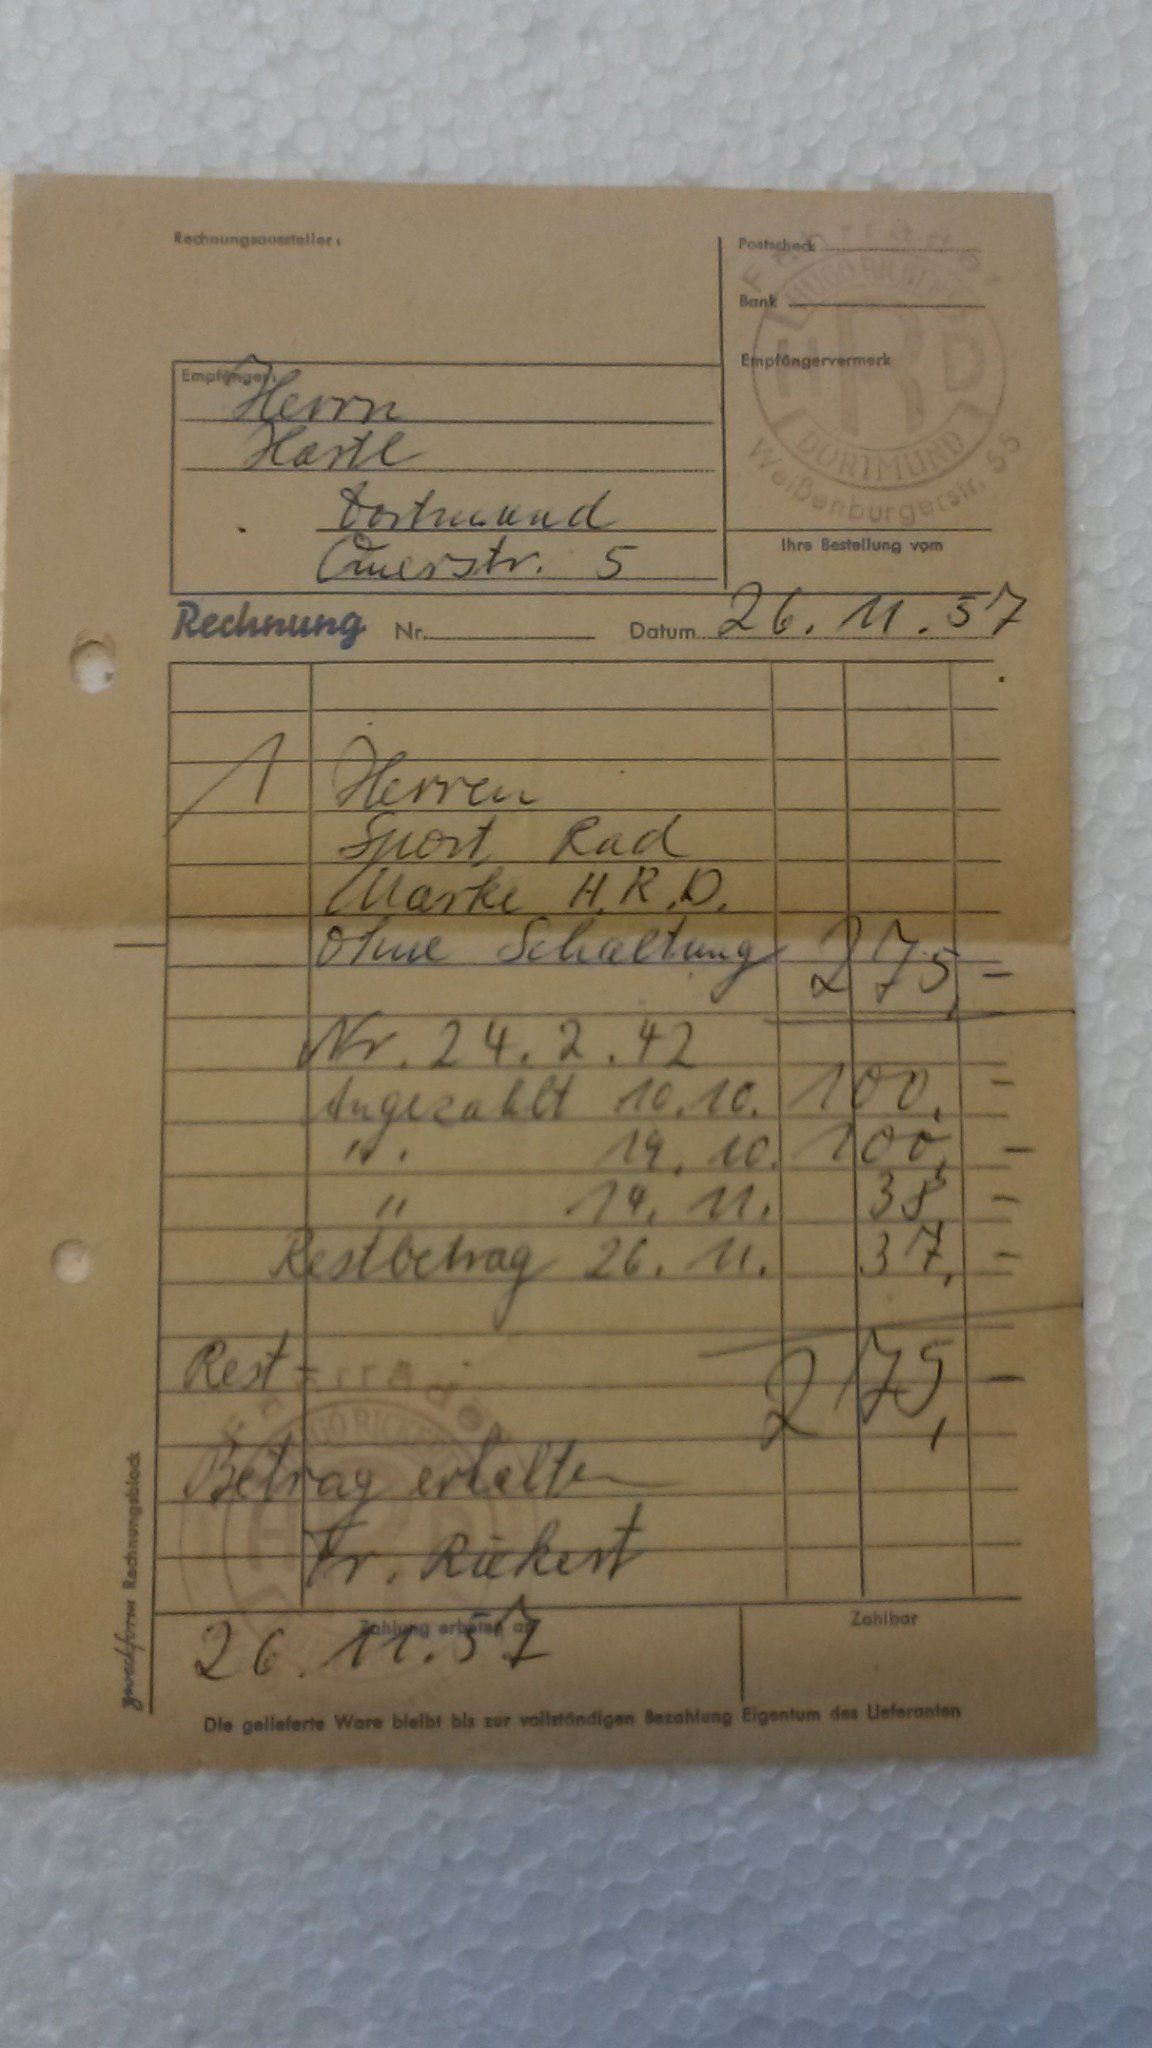 Rechnungsaussteller:
Postscheck
Bank
Empfängervermerk
Fahrräder
HUGO RICKERT
HRD
DORTMUND
Weißenburgerstr. 55
Ihre Bestellung vom
Empfänger:
Herrn
Hartl
Dortmund
Querstr. 5
Rechnung Nr. Datum 26.11.57
1 Herren
Sport Rad
Marke H.R.D.
ohne Schaltung 275,-
Nr. 24.2.42
Angezahlt 10.10. 100,-
" 19.10. 100,-
" 14.11. 38,-
Restbetrag 26.11. 37,-
Rest - 275,-
Betrag erhalten
Fr. Rickert
26.11.57
Zahlung erbeten an
Zahlbar
Die gelieferte Ware bleibt bis zur vollständigen Bezahlung Eigentum des Lieferanten
zweckform Rechnungsblock